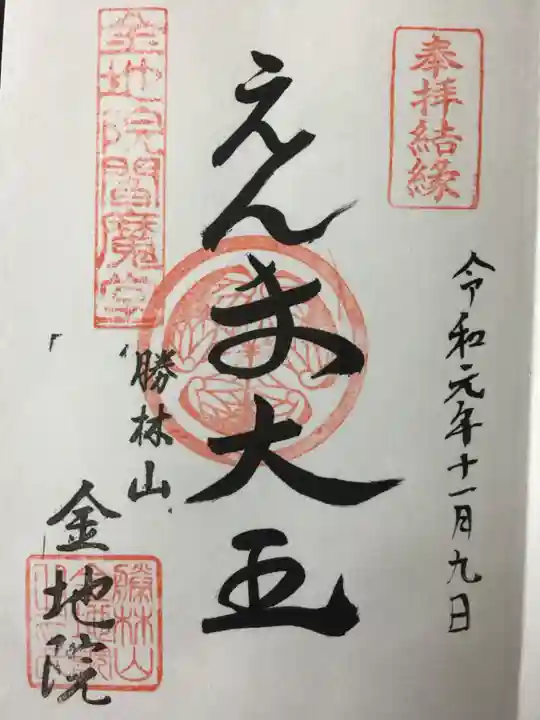 奉拝結縁
令和元年十一月九日
えんま大王
金地院閻魔堂
勝林山
金地院
勝林山